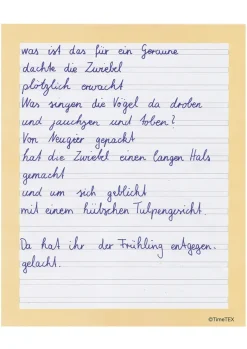 was ist das für ein Geraune
dachte die Zwiebel
plötzlich erwacht
Was singen die Vögel da droben
und jauchzen und toben?
Von Neugier gepackt
hat die Zwiebel einen langen Hals
gemacht
und um sich geblickt
mit einem hübschen Tulpengesicht.
Da hat ihr der Frühling entgegen.
gelacht.
©TimeTEX